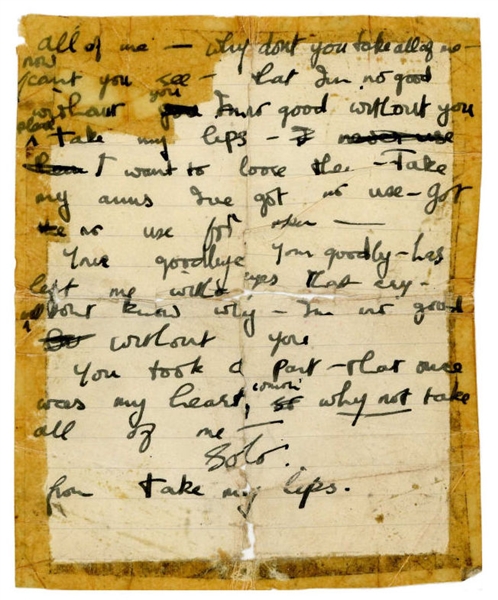 all of me — why dont you take all of me —
now
cant you see — that Im no good
you
without you Im no good without you
please
take my lips — I never use
them I want to loose the — Take
my arms Ive got no use — got
no use for
Your goodbye Your goodby — has
left me with eyes that cry —
dont know why — Im no good
without you
You took a part — that once
was my heart, so why not take
all of me —
Solo.
from take my lips.